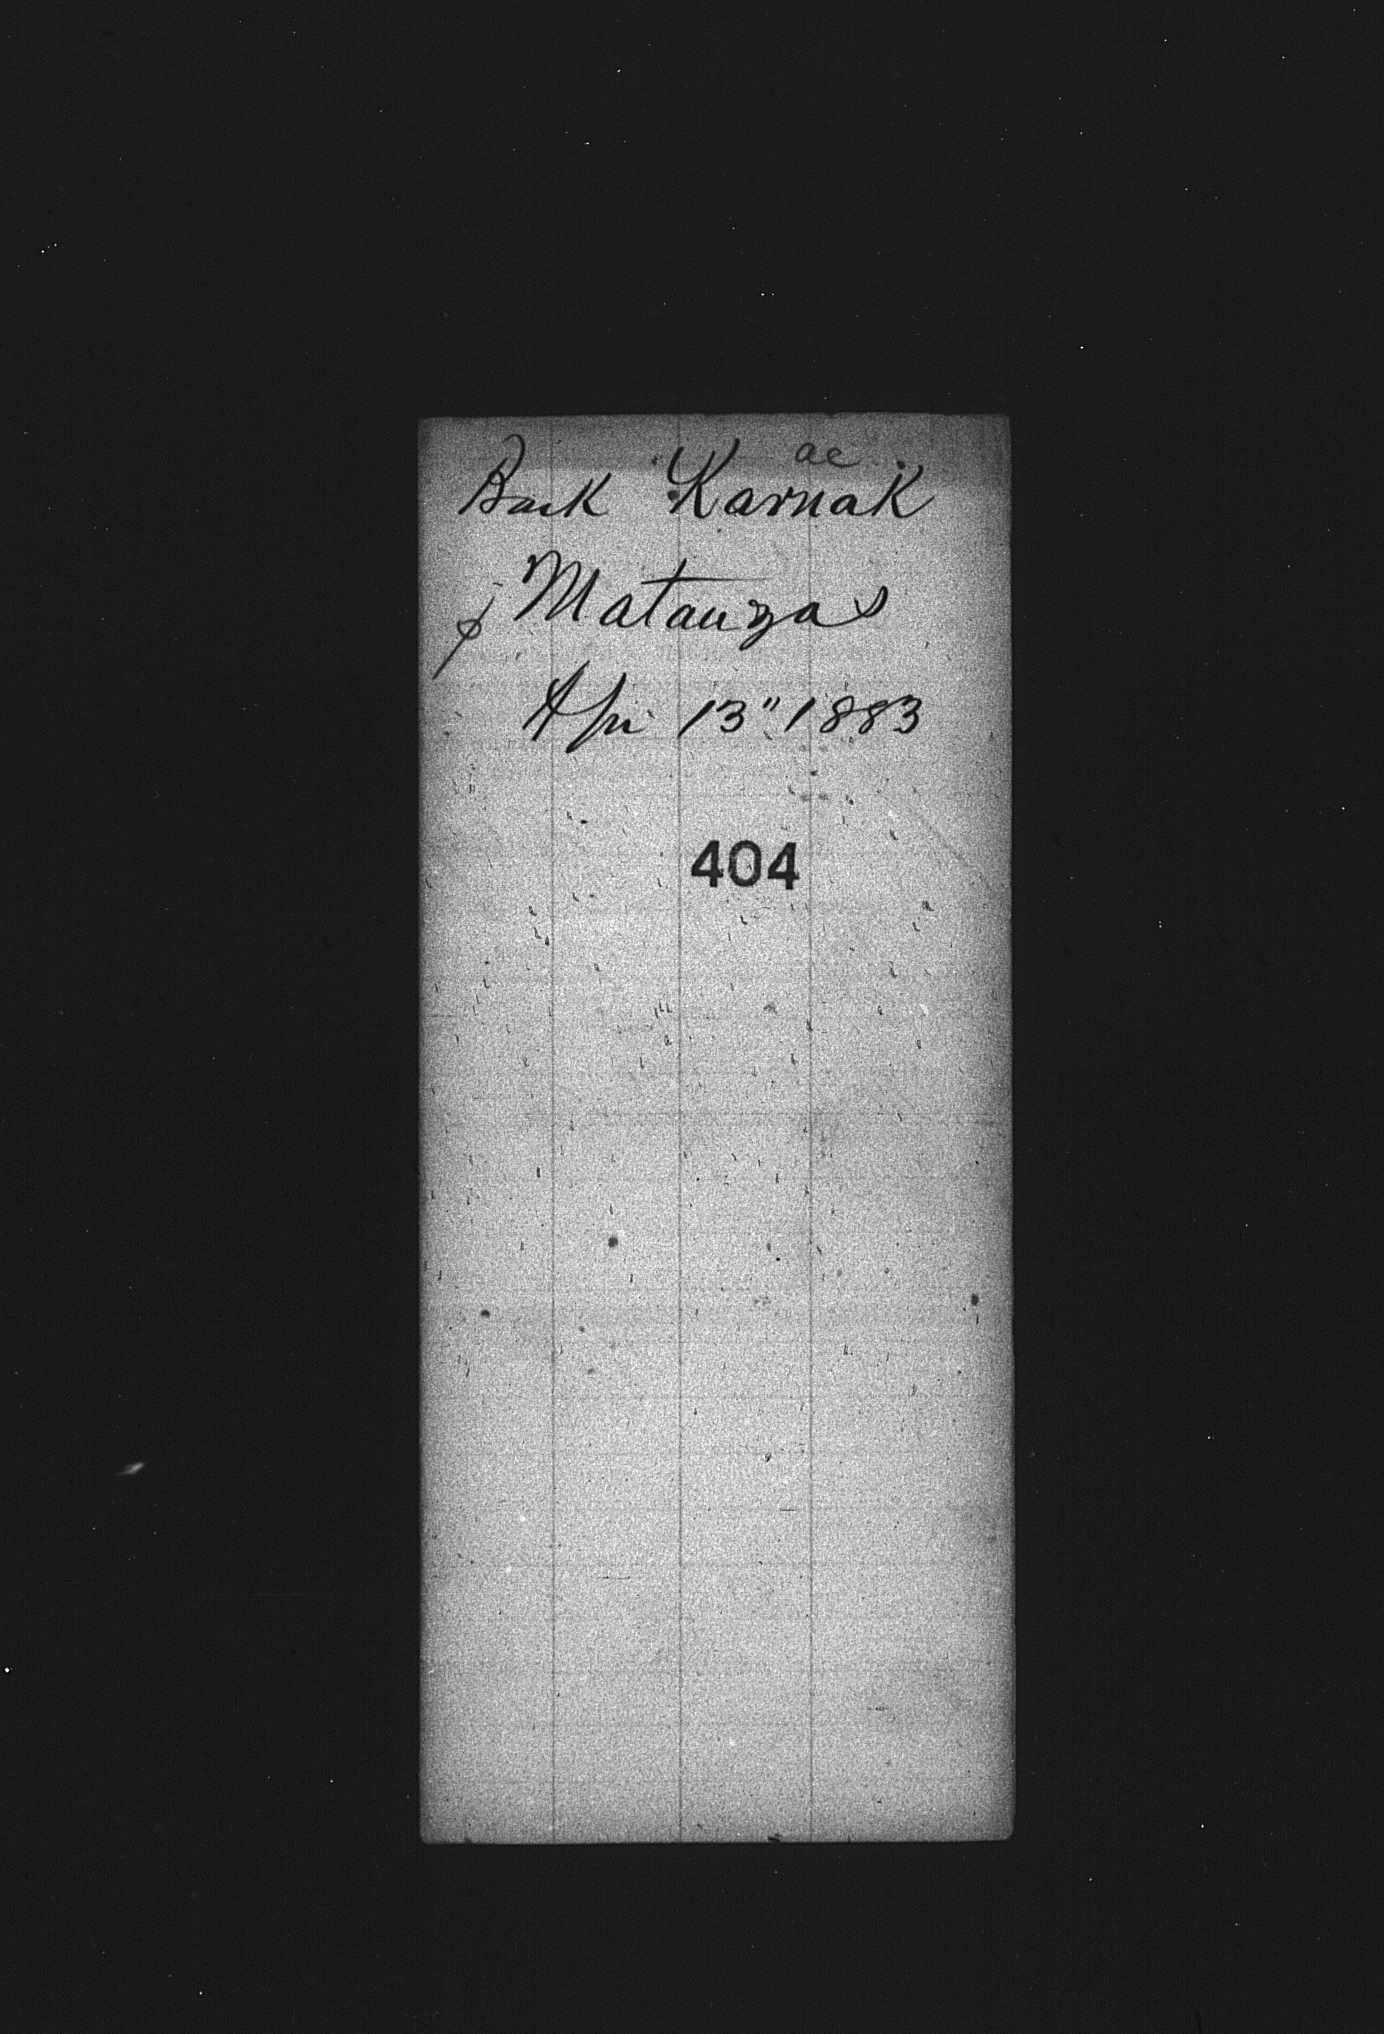 ac
Bark Karnak
Matanzas
Apr 13" 1883
404